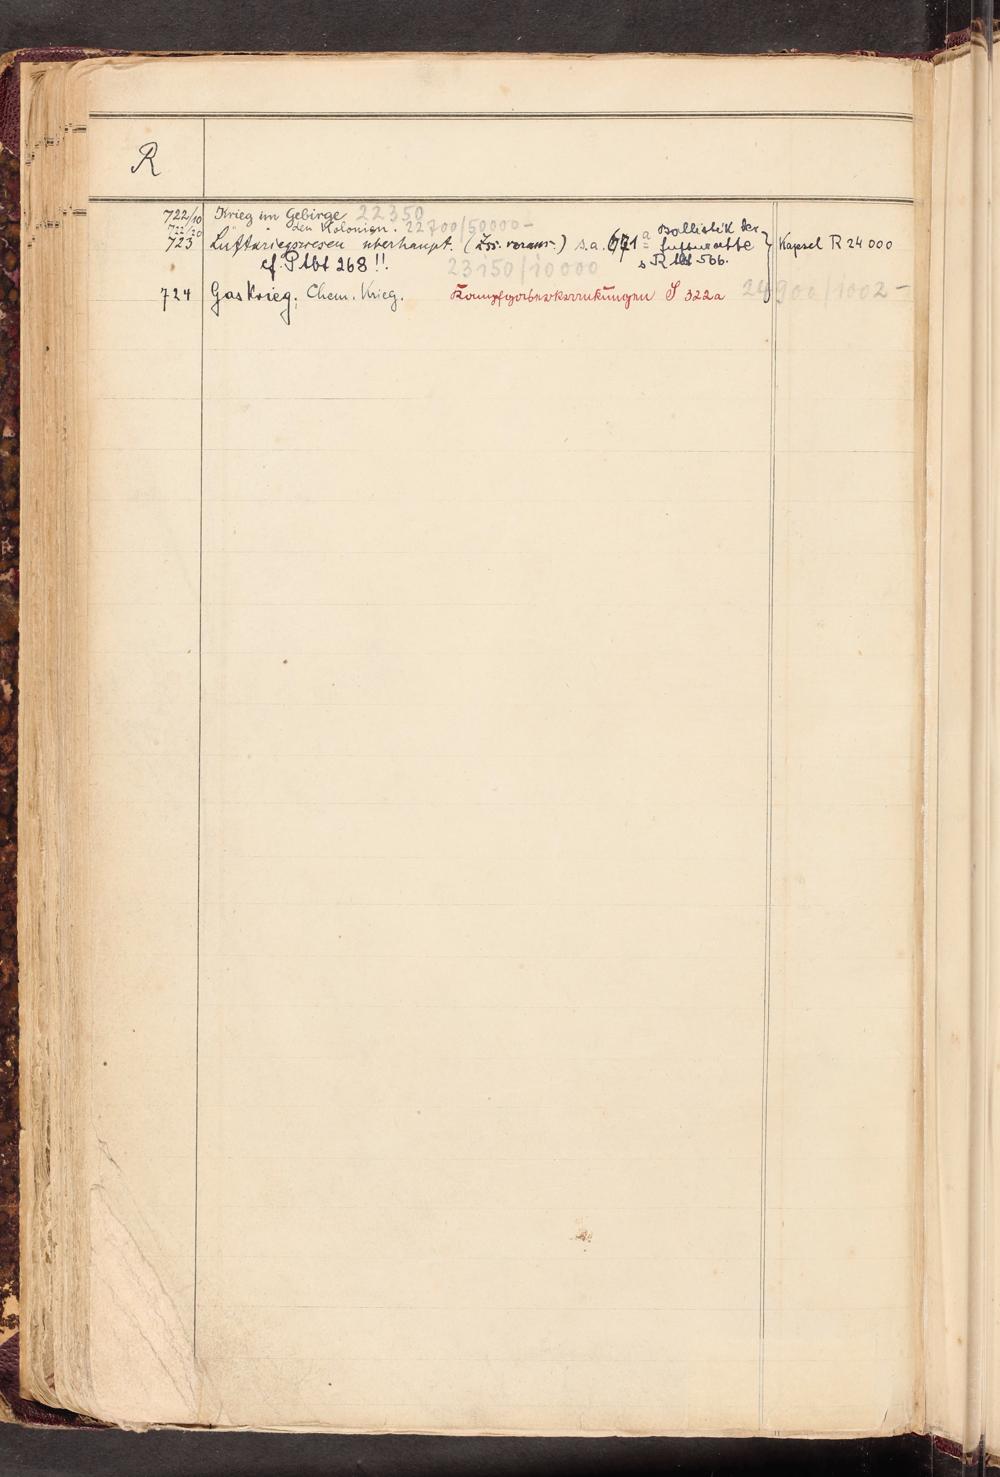 R
722/10 Krieg im Gebirge 22350
722/20 " den Kolonien. 22700/50000-
723 Luftkriegswesen überhaupt. (Zss. voraus.) s.a. 671a Ballistik der
cf. P Abt 268!! 23150/10000 s. R Abt 566. Kapsel R 24 000
724 Gaskrieg; Chem. Krieg. Kampfgaserkrankungen S 322a 24900/1002-